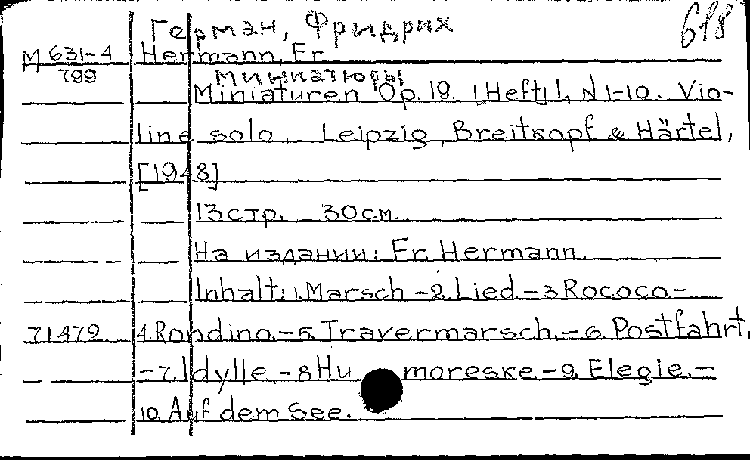 Герман, Фридрих 618
М 631-4 Hermann, Fr.
799 Миниатюры
Miniaturen Op. 19. (Heft) 1, N 1-10. Vio-
line solo. Leipzig, Breitkopf & Härtel,
[1948]
13 стр. 30 см.
На издании: Fr. Hermann.
Inhalt: 1. Marsch - 2. Lied. - 3 Rococo -
71479 4. Rondino. - 5. Travermarsch. - 6. Postfahrt.
- 7. Idylle - 8 Humoreske - 9. Elegie. -
10. Auf dem See.